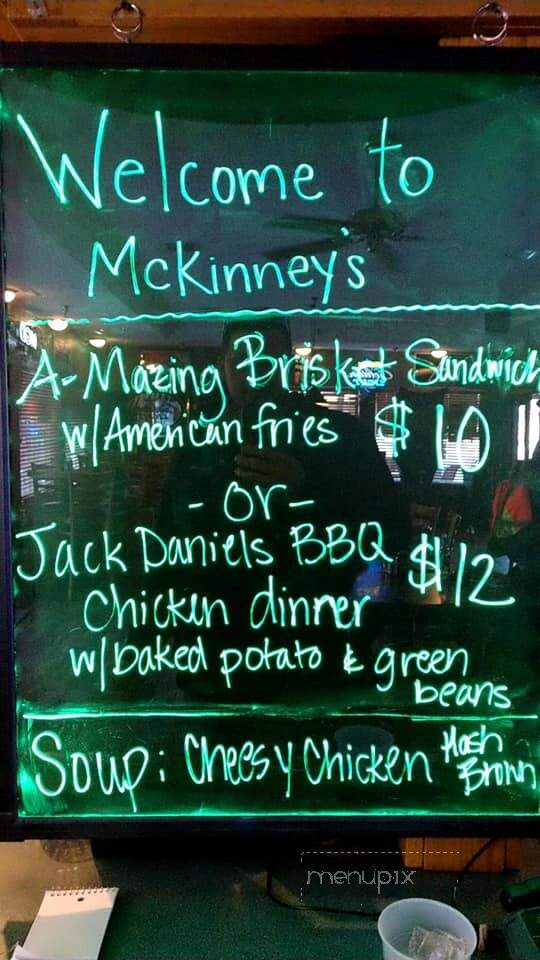 Welcome to
McKinney's
A-Mazing Brisket Sandwich
w/American fries $10
-or-
Jack Daniels BBQ $12
Chicken dinner
w/baked potato & green
beans
Soup: Cheesy Chicken Hash
Brown
menupix